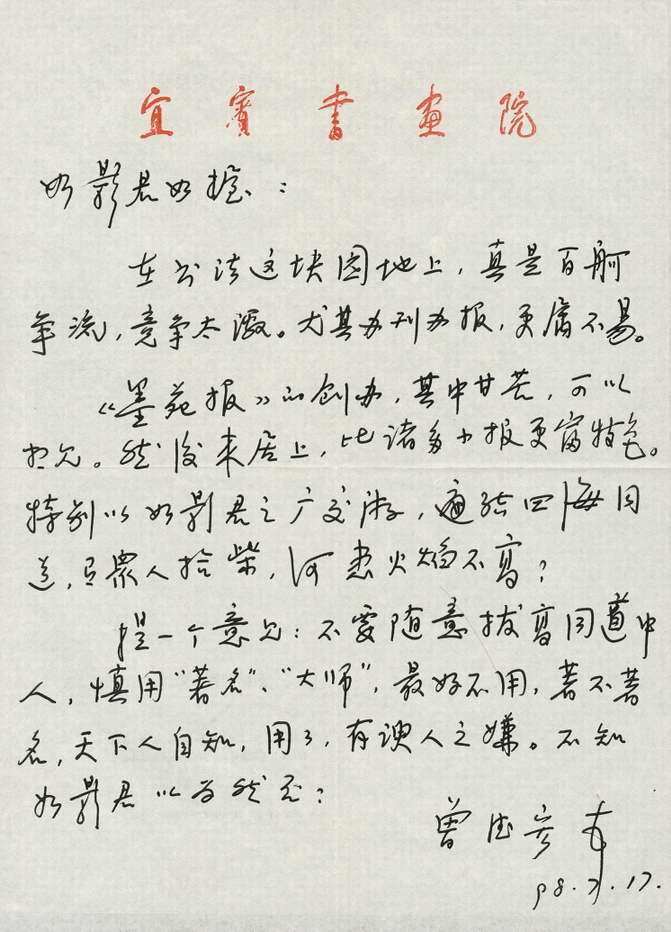 宜宾書画院
如影君如握：
在书法这块园地上，真是百舸
争流，竞争太激。尤其办刊办报，更属不易。
《墨苑报》的创办，其中甘苦，可以
想见。然后来居上，比诸多小报更富特色。
特别以如影君之广交游，遍结四海同
道，且众人拾柴，何患火焰不高？
提一个意见：不要随意拔高同道中
人，慎用“著名”、“大师”，最好不用，著不著
名，天下人自知，用了，有谀人之嫌。不知
如影君以为然否？
曾德彦
98.7.17.